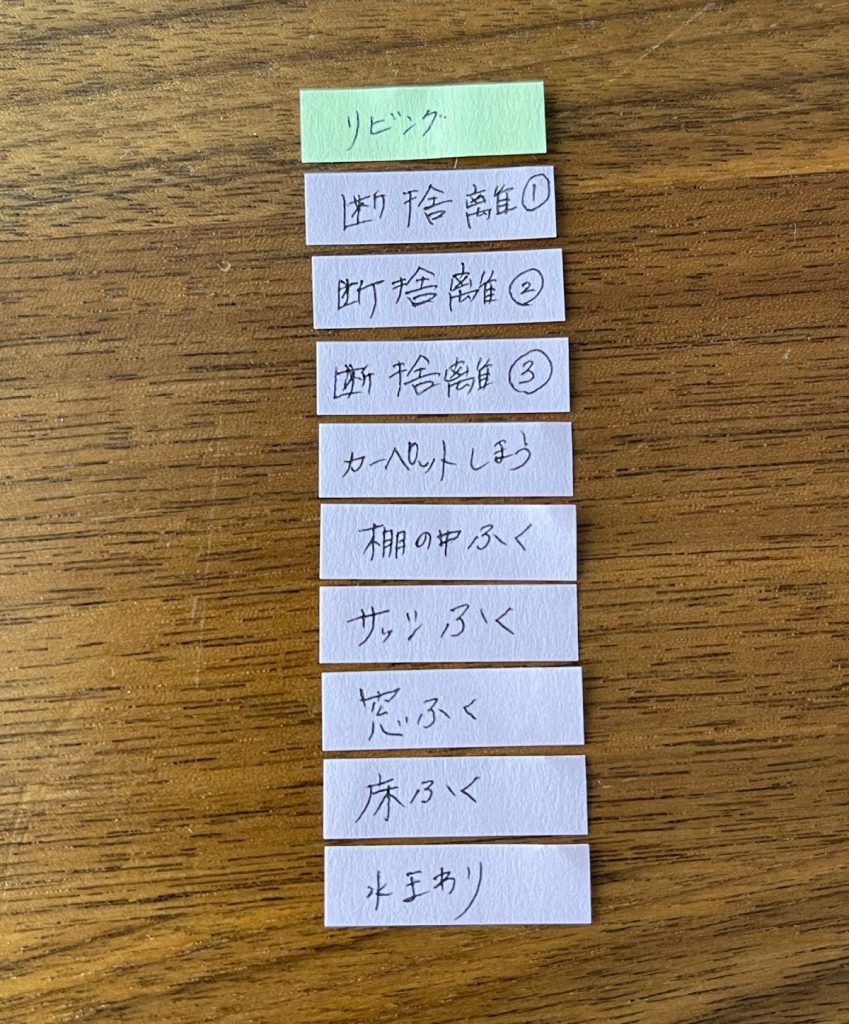 リビング
断捨離①
断捨離②
断捨離③
カーペットしまう
棚の中ふく
サッシふく
窓ふく
床ふく
水まわり